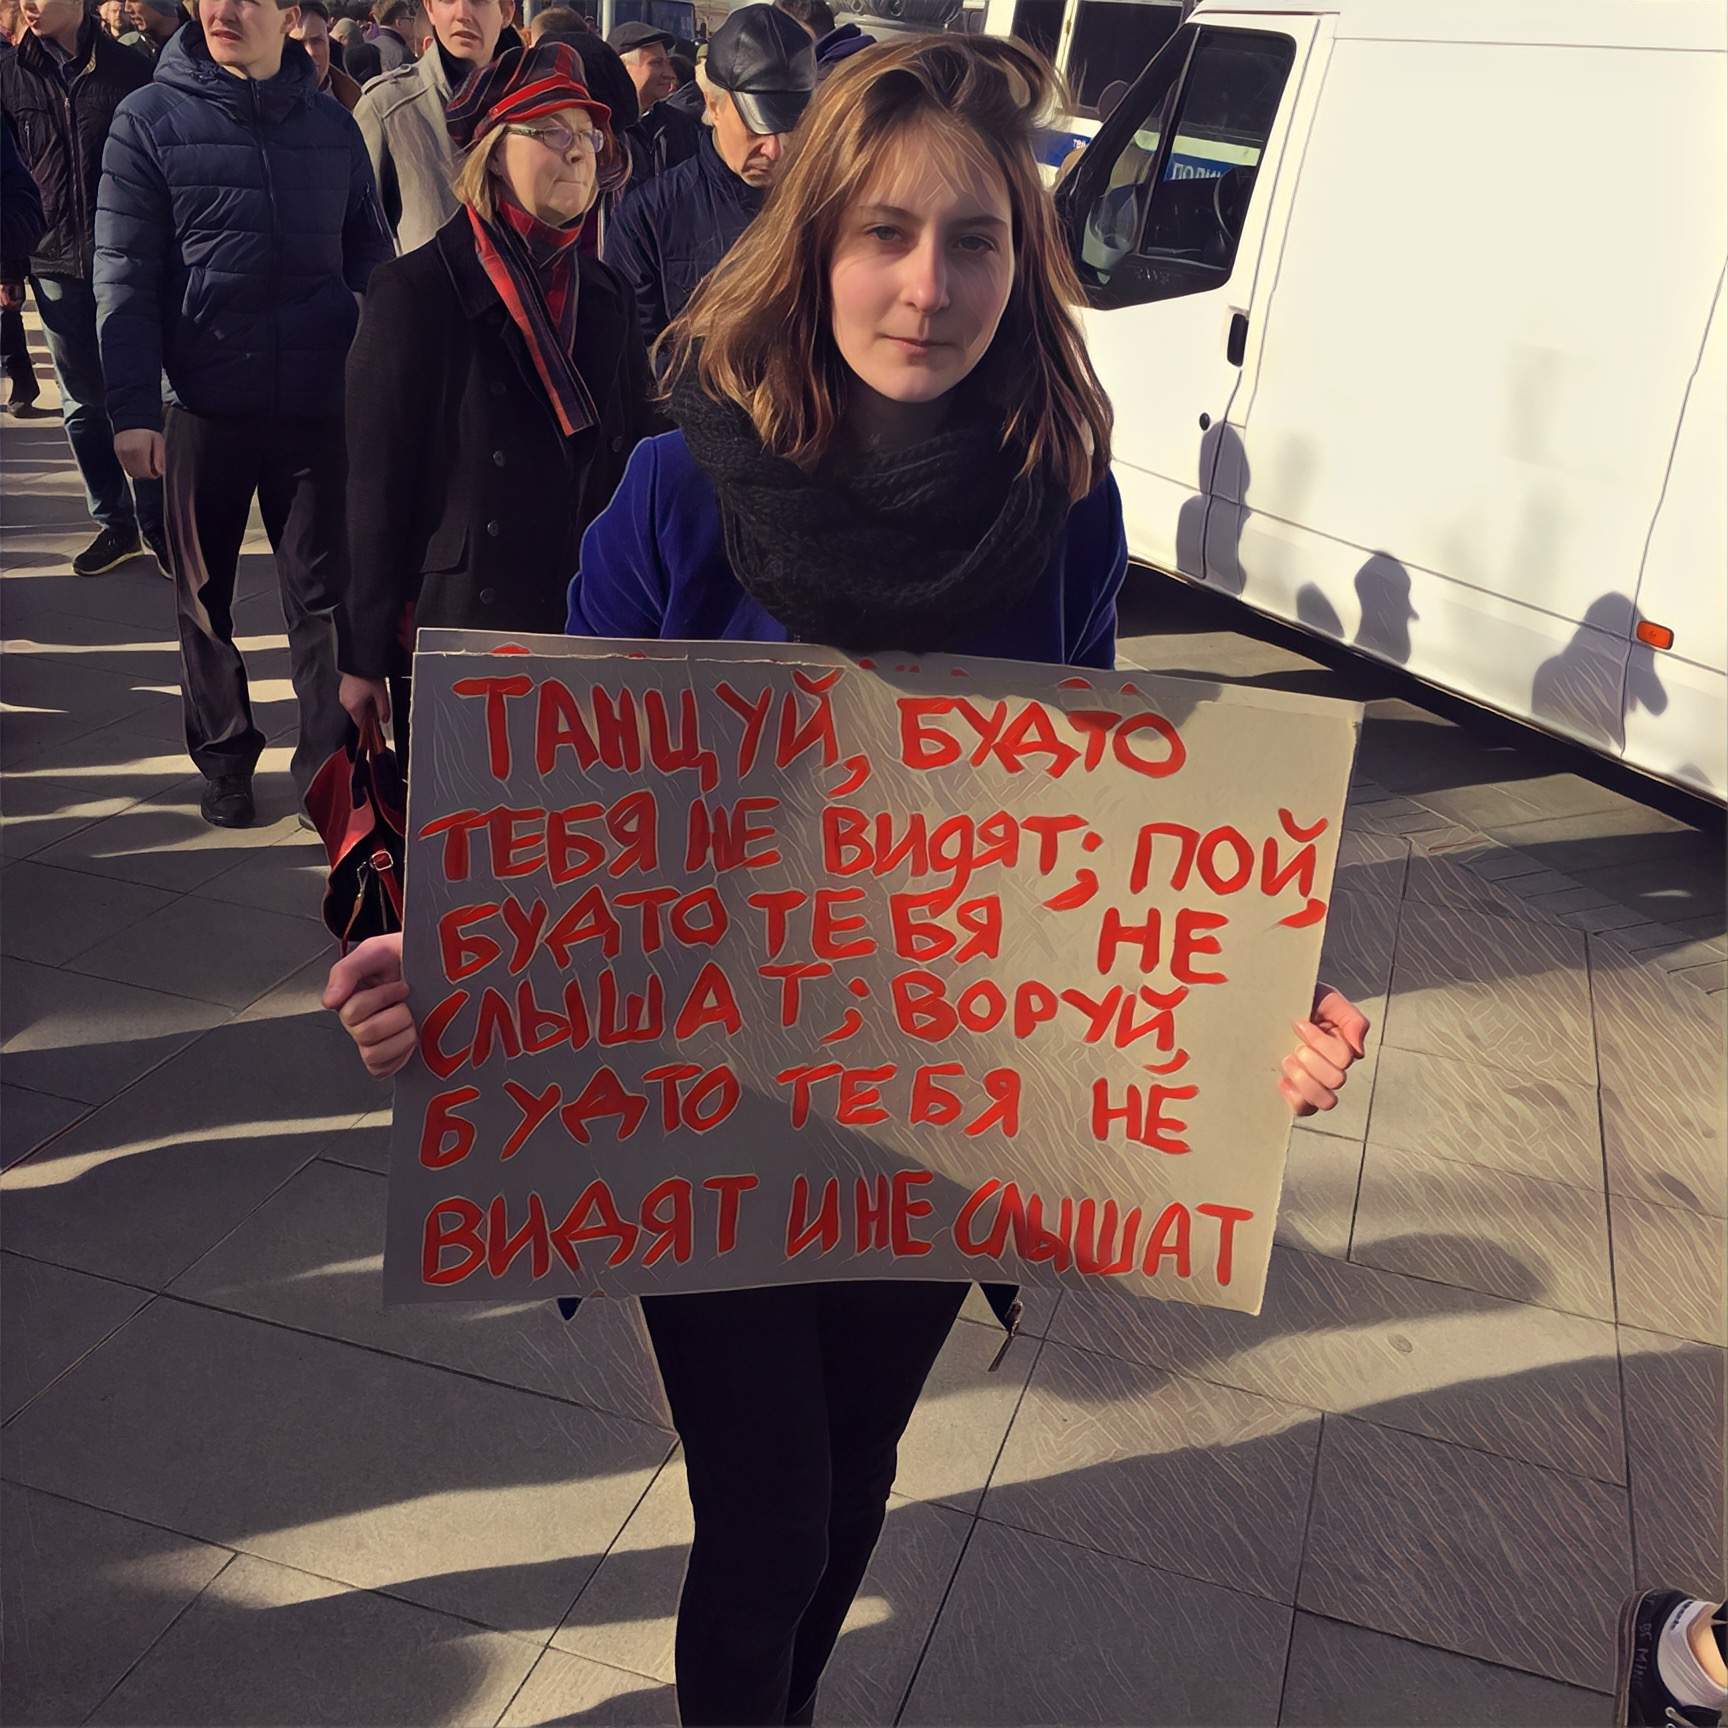 ТАНЦУЙ, БУДТО
ТЕБЯ НЕ ВИДЯТ; ПОЙ,
БУДТО ТЕБЯ НЕ
СЛЫШАТ; ВОРУЙ,
БУДТО ТЕБЯ НЕ
ВИДЯТ И НЕ СЛЫШАТ